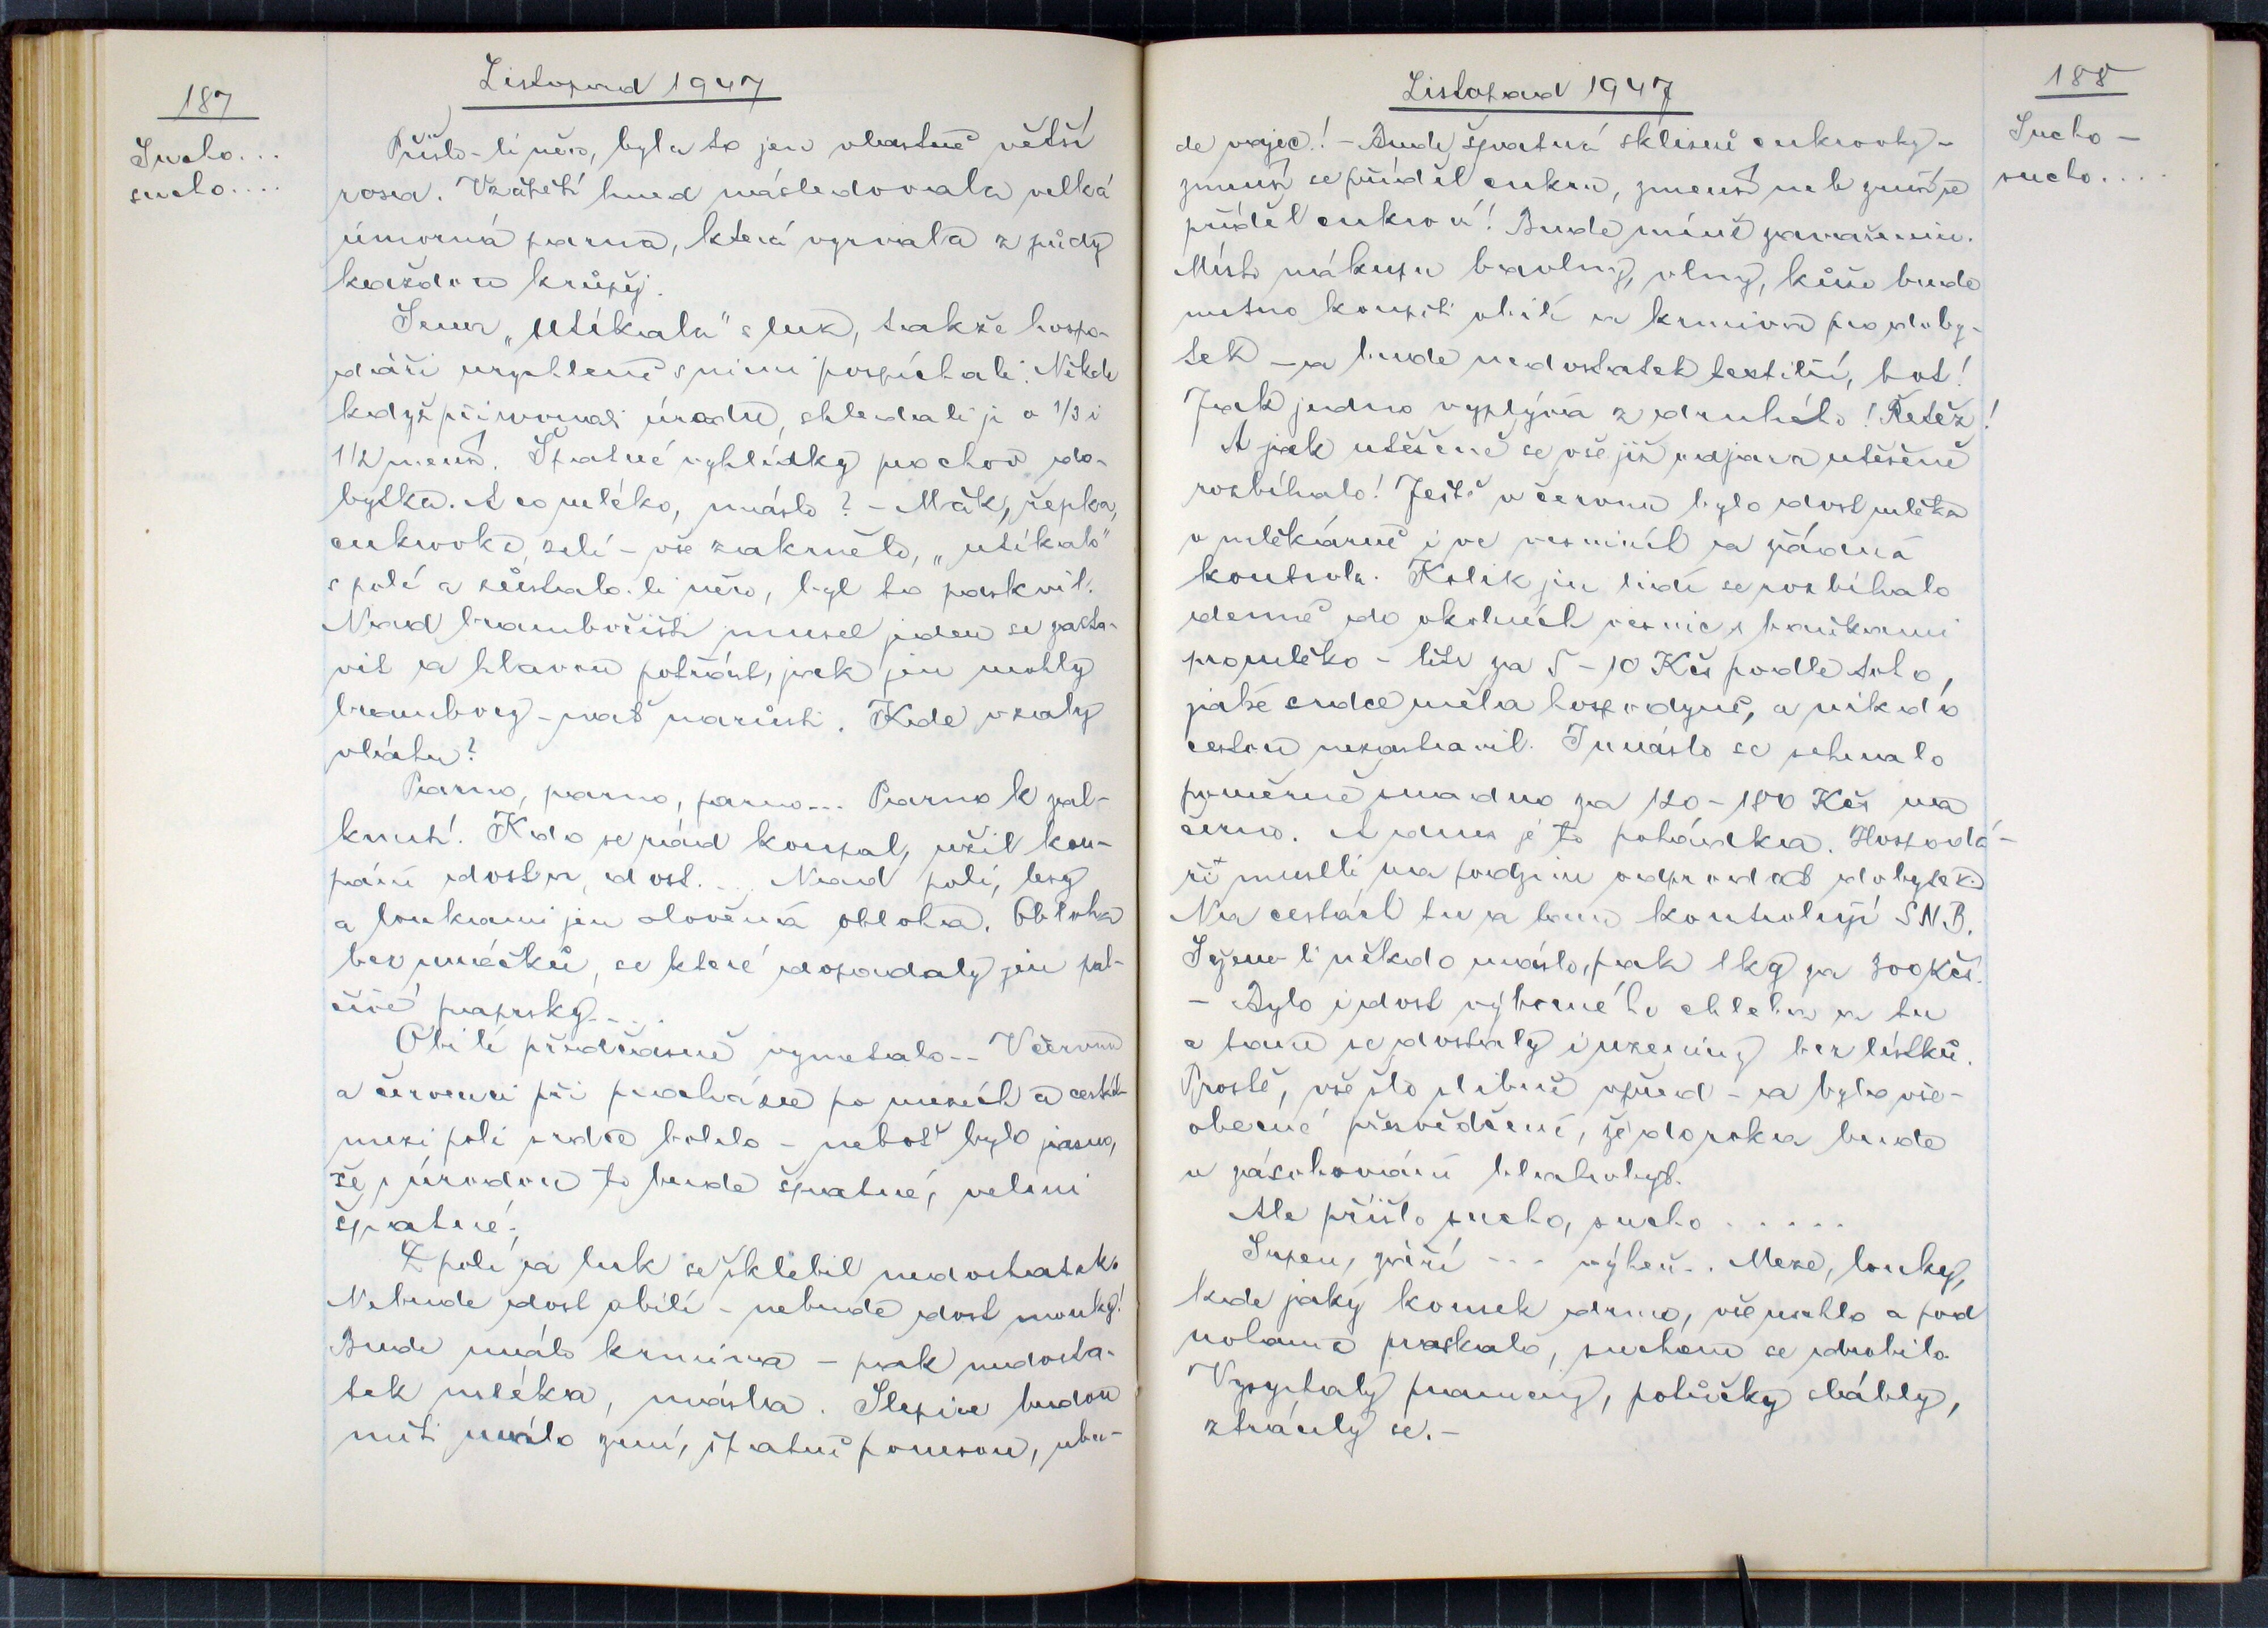 187
Listopad 1947
Sucho...
sucho....
Přišlo-li něco, byla to jen vlastně větší
rosa. Vzápětí hned následovala velká
úmorná parna, která vyrvala z půdy
každou krůpěj.
Sena "utíkala" s luk, takže hospo-
dáři urychleně s nimi pospíchali. Někde
když přirovnali úrodu, shledali ji o 1/3 i
1/2 menší. Špatné vyhlídky pro chov do-
bytka. A co mléko, máslo? - Mák, řepka,
cukrovka, zelí - vše zakrnělo, "utíkalo"
s polí a zůstalo-li něco, byl to paskvil.
Nad bramboříšti musel jeden se zasta-
vit a hlavou potřást, jak jen mohly
brambory - nať narůsti. Kde vzaly
vláhu?
Parno, parno, parno... Parno k zal-
knutí. Kdo se rád koupal, užil kou-
pání dosta, dost... Nad poli, lesy
a loukami jen olověná obloha. Obloha
bez mráčků, se které dopadaly jen pal-
čivé paprsky....
Obilí předčasně vymetalo.. V červnu
a červenci při procházce po mezích a cestách
mezi poli srdce bolelo - neboť bylo jasno,
že s úrodou to bude špatné, velmi
špatné.
Z polí a luk se šklebil nedostatek.
Nebude dost obilí - nebude dost mouky!
Bude málo krmiva - pak nedosta-
tek mléka, másla. Slepice budou
míti málo zrní, špatně ponesou, ubu-
Listopad 1947
188
Sucho -
sucho....
de vajec! - Bude špatná sklizeň cukrovky -
zmenší se příděl cukru, zmenší neb zruší se
příděl cukroví! Bude míně zavařenin.
Místo nákupu bavlny, vlny, kůže bude
nutno koupiti obilí a krmiva pro doby-
tek - a bude nedostatek textilií, bot!
Jak jedno vyplývá z druhého! Řetěz!
A jak utěšeně se vše již odjara utěšeně
rozbíhalo! Ještě v červnu bylo dost mléka
v mlékárně i ve vesnicích a žádná
kontrola. Kolik jen lidí se rozbíhalo
denně do okolních vesnic s baňkami
pro mléko - litr za 5-10 Kčs podle toho,
jaké srdce měla hospodyně, a nikdo
cestou nezastavil. I máslo se sehnalo
poměrně snadno za 120-180 Kčs na
černo. A dnes je to pohádka. Hospodá-
ři museli na podzim odprodat dobytek.
Na cestách tu a tam kontrolují S.N.B.
Sežene-li někdo máslo, pak 1 kg za 300 Kčs.
- Bylo i dost výborného chleba a tu
a tam se dostaly i uzeniny bez lístků.
Prostě, vše šlo slibně vpřed - a bylo vše-
obecné přesvědčení, že do roka bude
v zásobování blahobyt.
Ale přišlo sucho, sucho.....
Srpen, září --- výheň.. Meze, louky,
kde jaký kousek drnu, vše uschlo a pod
nohama praskalo, suchem se drobilo.
Vysychaly prameny, potůčky slábly,
ztrácely se.-